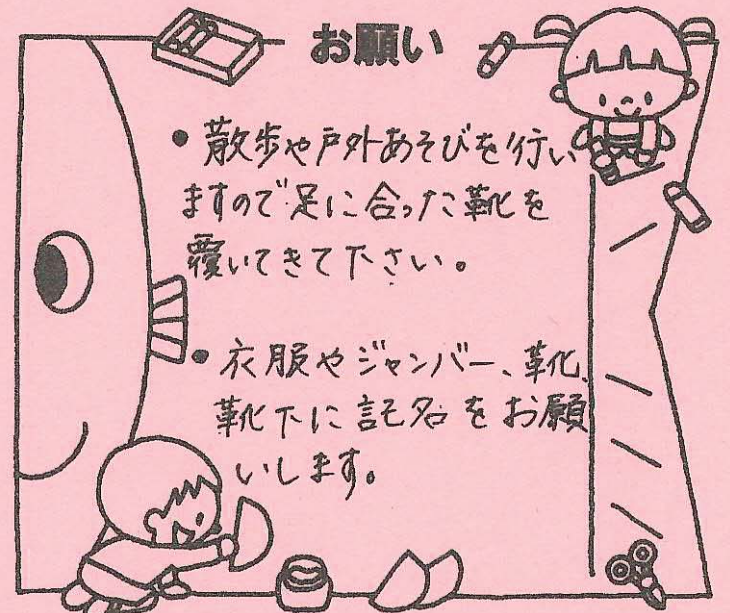 お願い
• 散歩や戸外あそびを行い
ますので足に合った靴を
覆いてきて下さい。
• 衣服やジャンバー、靴、
靴下に記名をお願
いします。